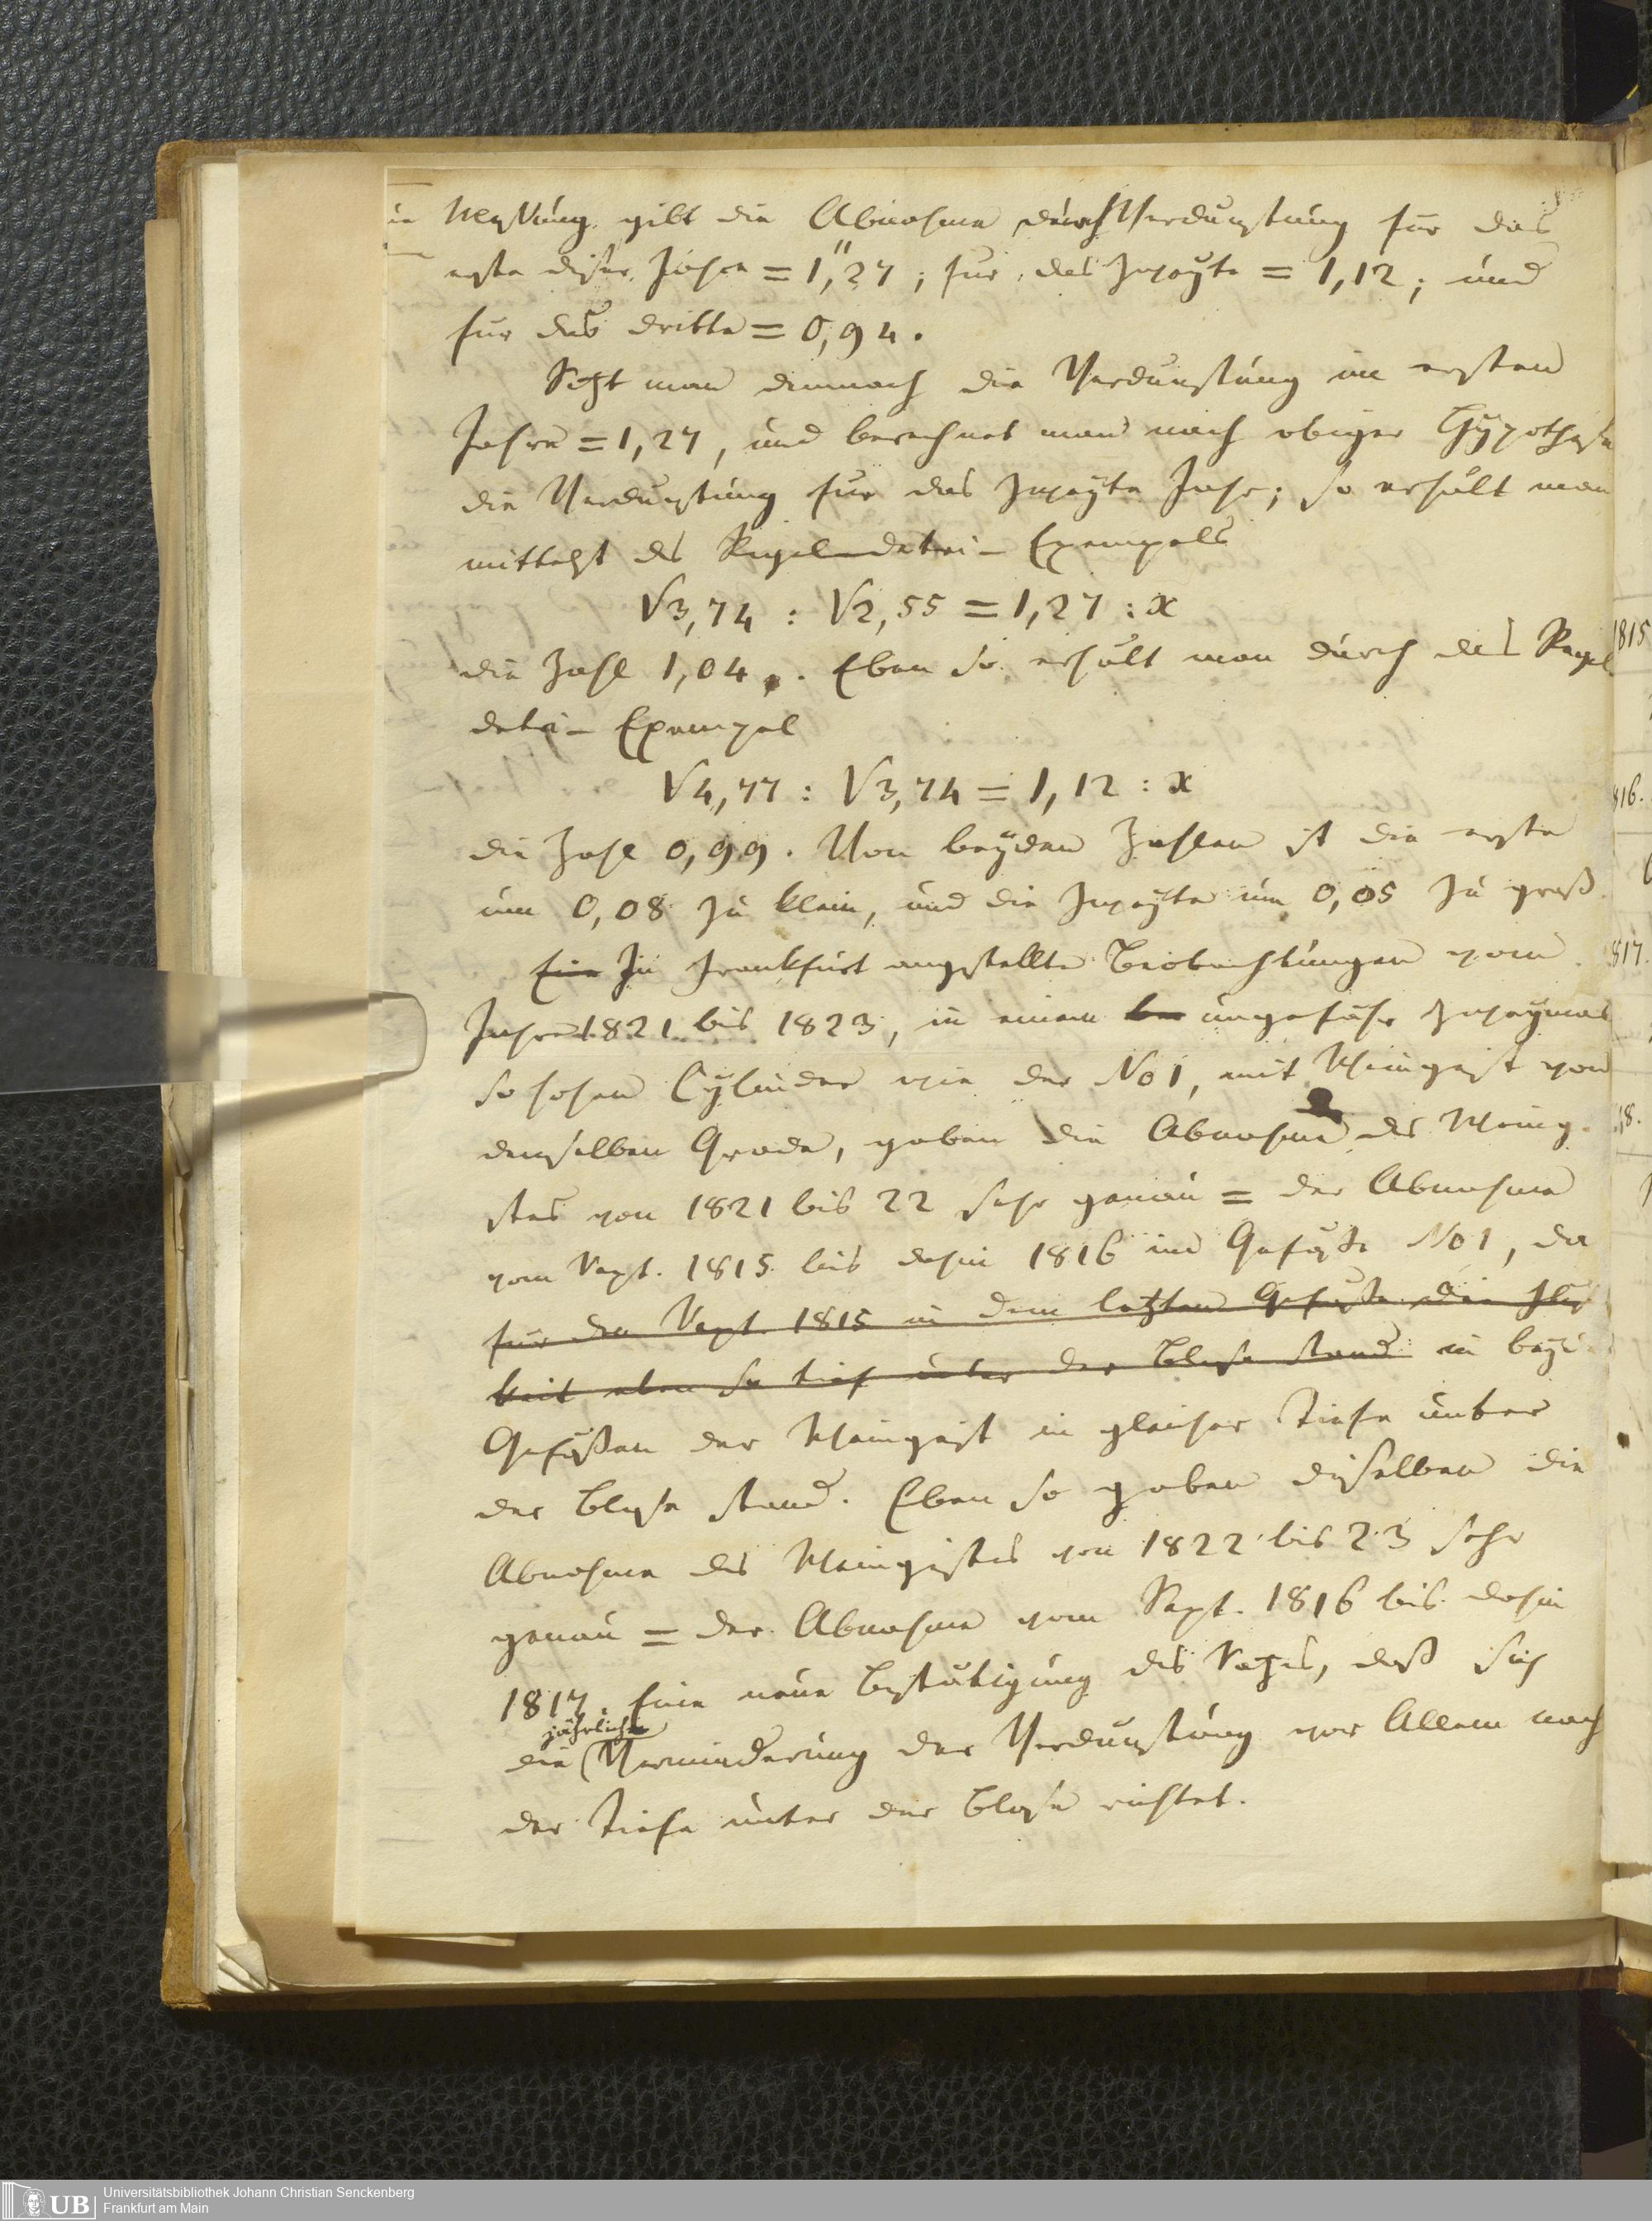 Messung gibt die Abnahme durch Verdunstung für das
erste dieser Jahre = 1,″27; für das zweyte = 1,12; und
für das dritte = 0,94.
Setzt man demnach die Verdunstung im ersten
Jahre = 1,27, und berechnet man nach obiger Hypothese
die Verdunstung für das zweyte Jahr; so erhält man
mittelst des Regeldetri-Exempels
√3,74 : √2,55 = 1,27 : x
die Zahl 1,04. Eben so erhält man durch das Regel
detri-Exempel
√4,77 : √3,74 = 1,12 : x
die Zahl 0,99. Von beyden Zahlen ist die erste
um 0,08 zu klein, und die zweyte um 0,05 zu groß.
Eine In Frankfurt angestellte Beobachtungen vom
Jahre 1821 bis 1823, in einem ungefähr zweymal
so hohen Cylinder wie der No 1, mit Weingeist von
demselben Grade, gaben die Abnahme des Weingei
stes von 1821 bis 22 sehr genau = der Abnahme
vom Sept. 1815 bis dahin 1816 im Gefäße No 1, da
für den Sept. 1815 in dem letzten Gefäße die Flüs
keit eben so tief unter der Blase stand in beyden
Gefäßen der Weingeist in gleicher Tiefe unter
der Blase stand. Eben so gaben dieselben die
Abnahme des Weingeistes von 1822 bis 23 sehr
genau = der Abnahme vom Sept. 1816 bis dahin
1817. Eine neue Bestätigung des Satzes, daß sich
jährliche
die Verminderung der Verdunstung vor Allem nach
der Tiefe unter der Blase richtet.
1815
816.
817.
18.
UB
Universitätsbibliothek Johann Christian Senckenberg
Frankfurt am Main